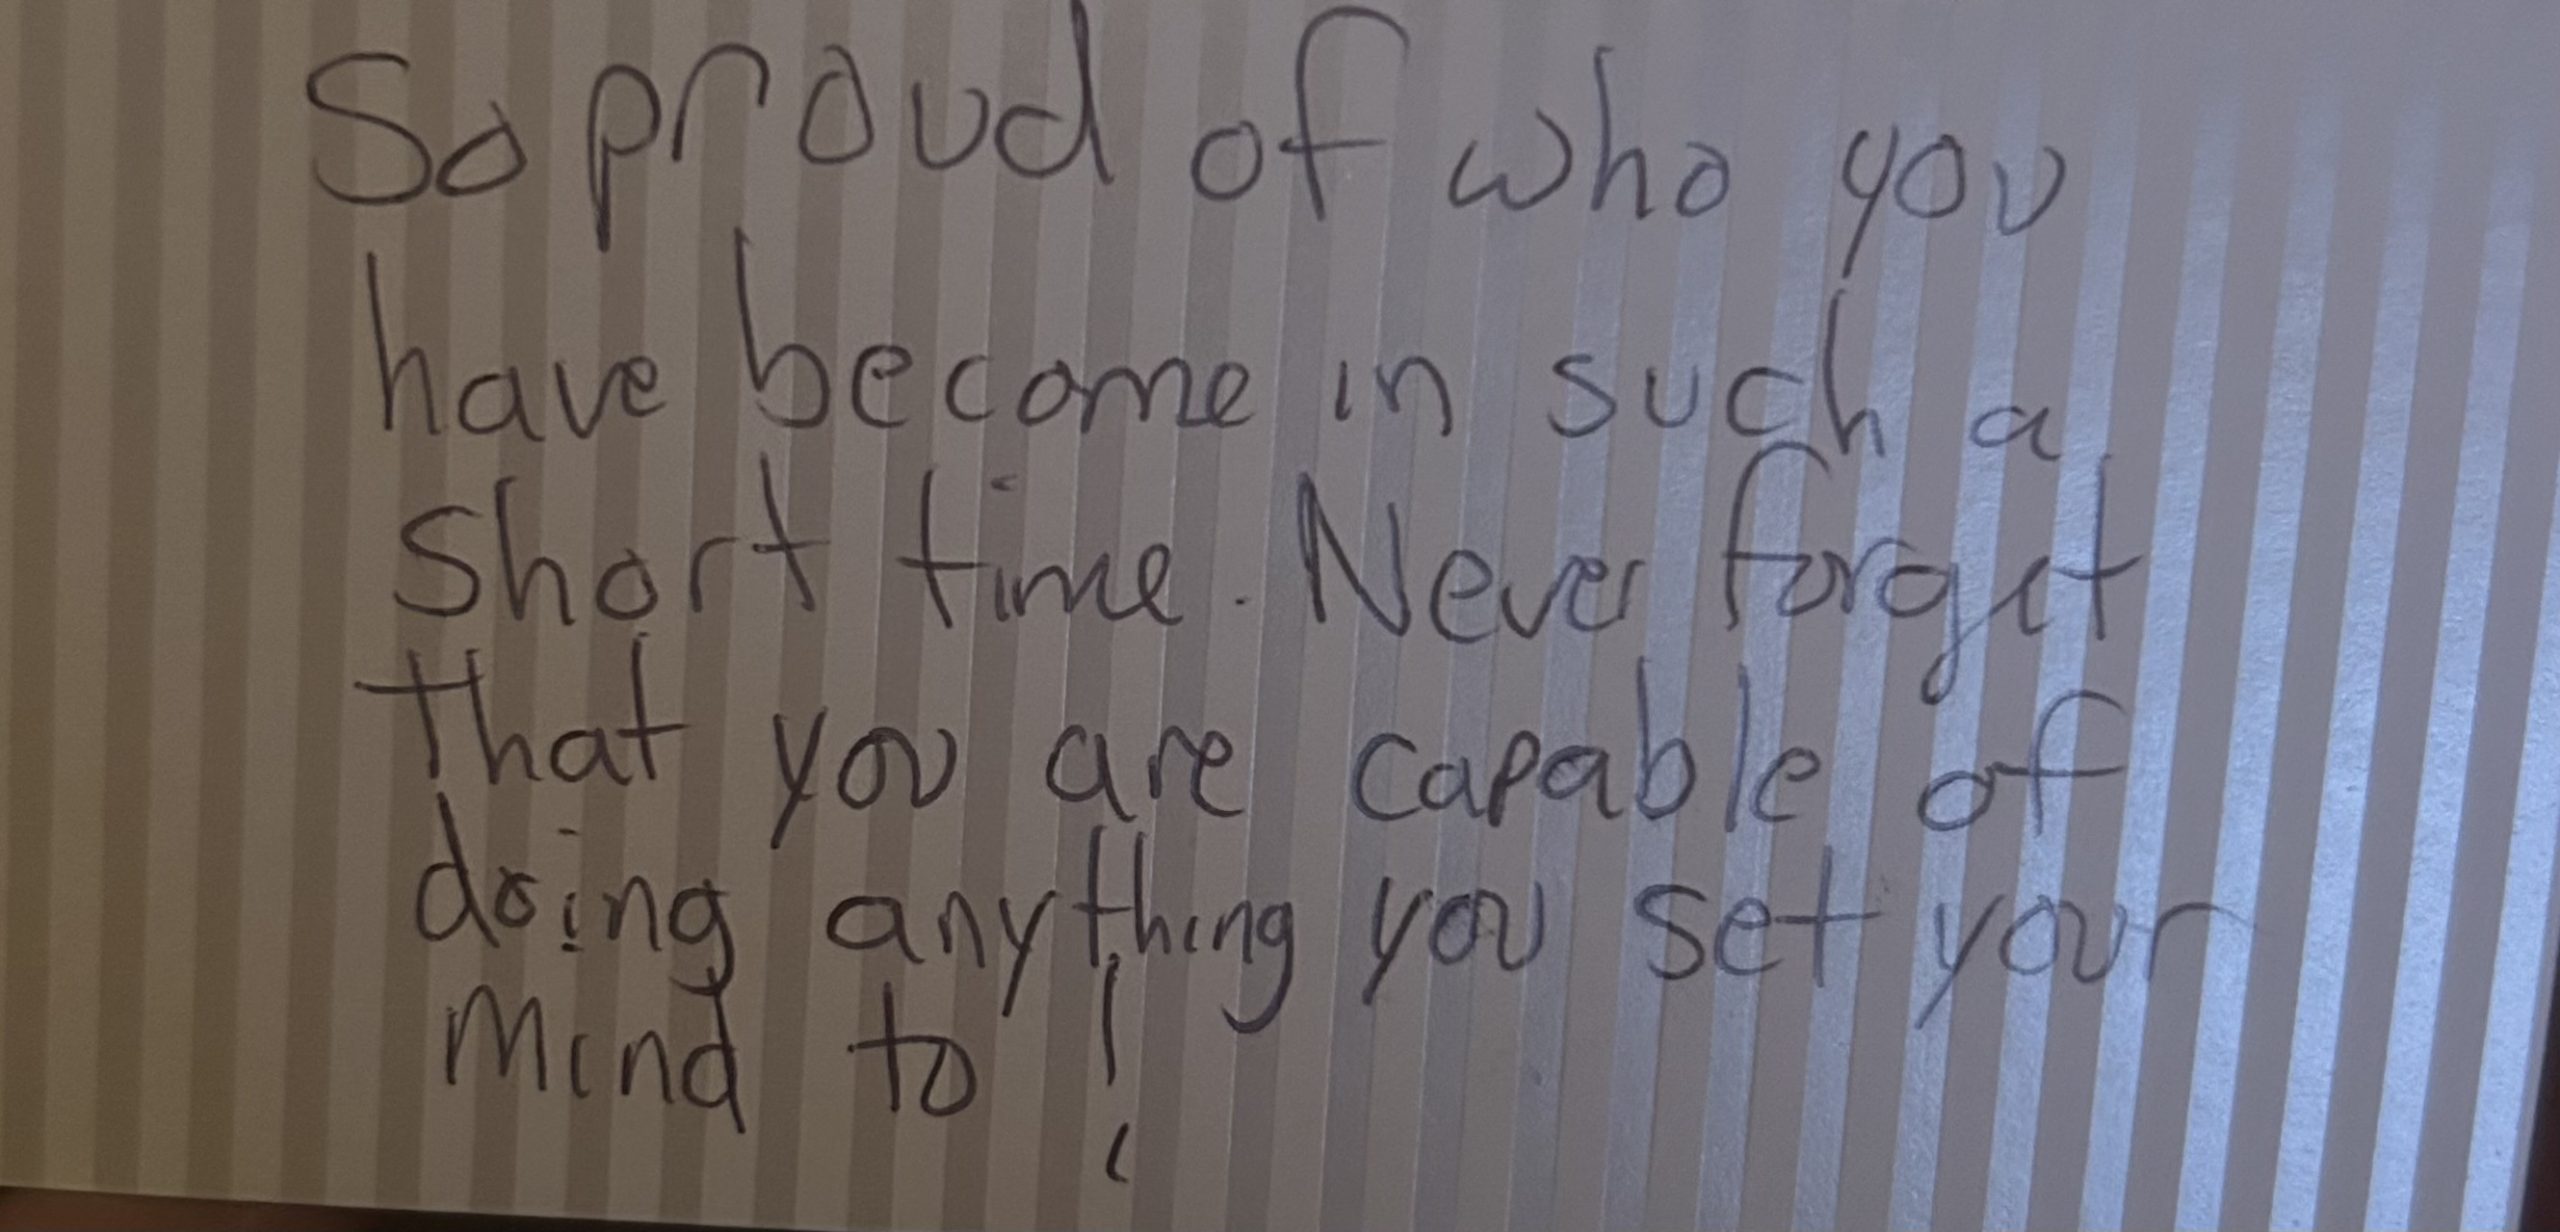 So proud of who you
have become in such a
short time. Never forget
that you are capable of
doing anything you set your
mind to!